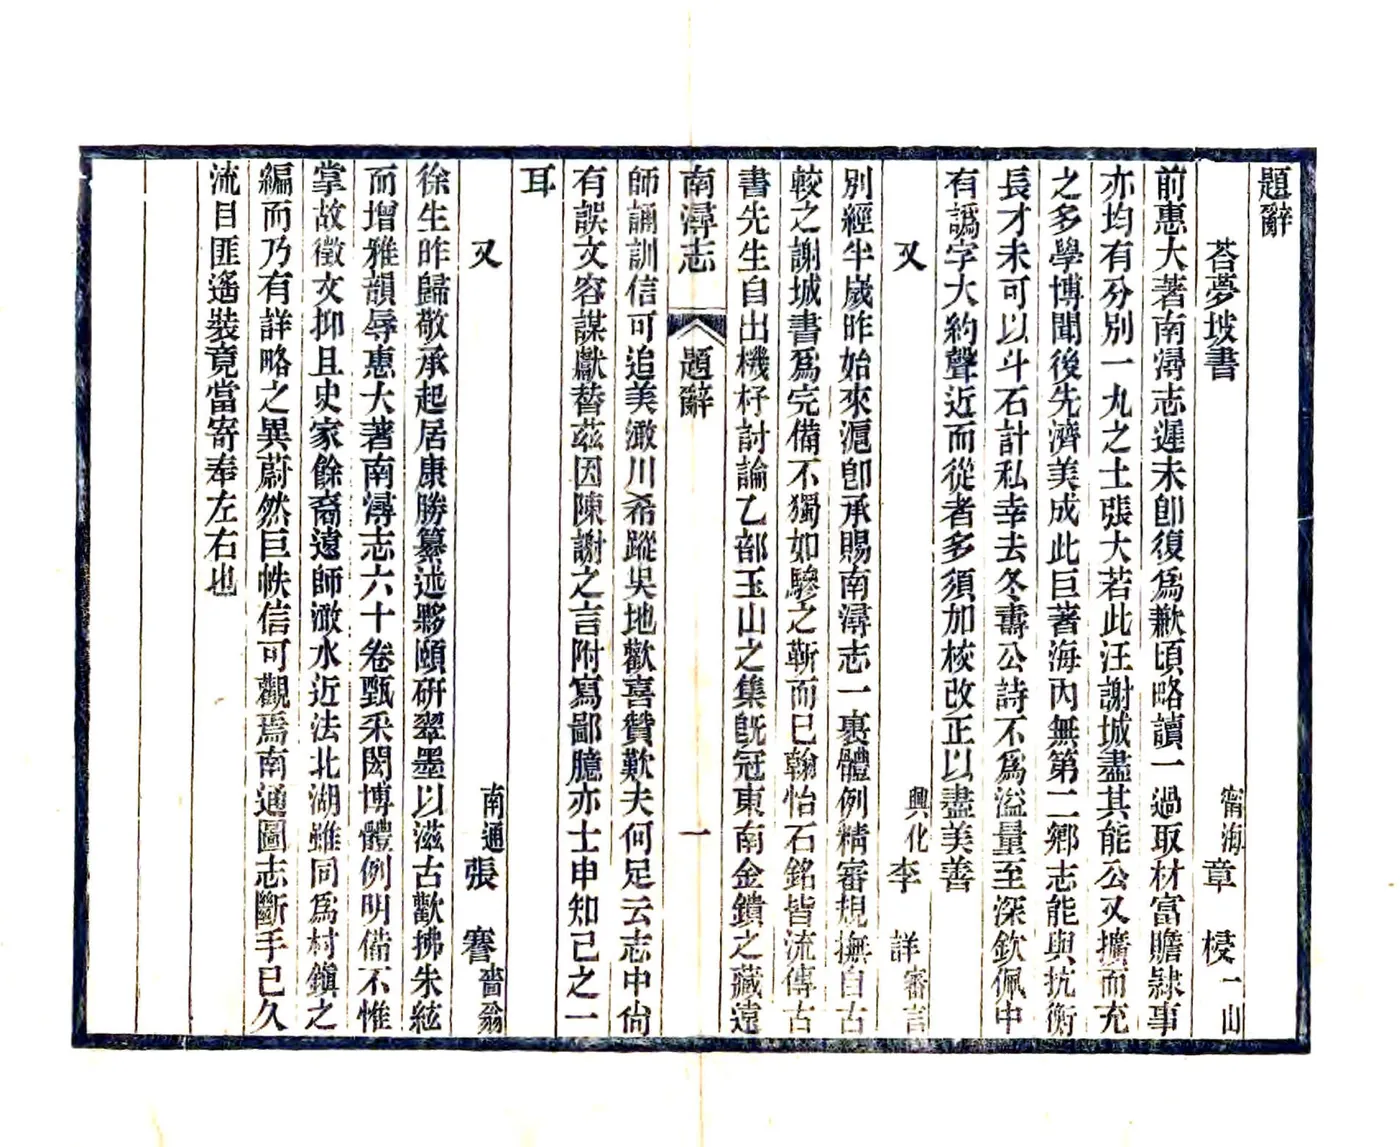 題辭
荅夢坡書 甯海章梫一山
前惠大著南潯志遲未卽復爲歉頃略讀一過取材富贍隷事
亦均有分別一九之土張大若此汪謝城盡其能公又擴而充
之多學博聞後先濟美成此巨著海內無第二鄕志能與抗衡
長才未可以斗石計私幸去冬壽公詩不爲溢量至深欽佩中
有譌字大約聲近而從者多須加核改正以盡美善
又 興化李詳審言
別經半歲昨始來滬卽承賜南潯志一裹體例精審規撫自古
較之謝城書爲完備不獨如驂之靳而已翰怡石銘皆流傳古
書先生自出機杼討論乙部玉山之集旣冠東南金鐀之藏遠
南潯志 題辭 一
師誦訓信可追美澉川希蹤吳地歡喜贊歎夫何足云志中尙
有誤文容謀獻替茲因陳謝之言附寫鄙臆亦士申知己之一
耳
又 南通張謇嗇翁
徐生昨歸敬承起居康勝纂述夥頤硏翠墨以滋古歡拂朱絃
而增雅韻辱惠大著南潯志六十卷甄采閎博體例明備不惟
掌故徵文抑且史家餘裔遠師澉水近法北湖雖同爲村鎭之
編而乃有詳略之異蔚然巨帙信可觀焉南通圖志斷手已久
流目匪遙裝竟當寄奉左右也